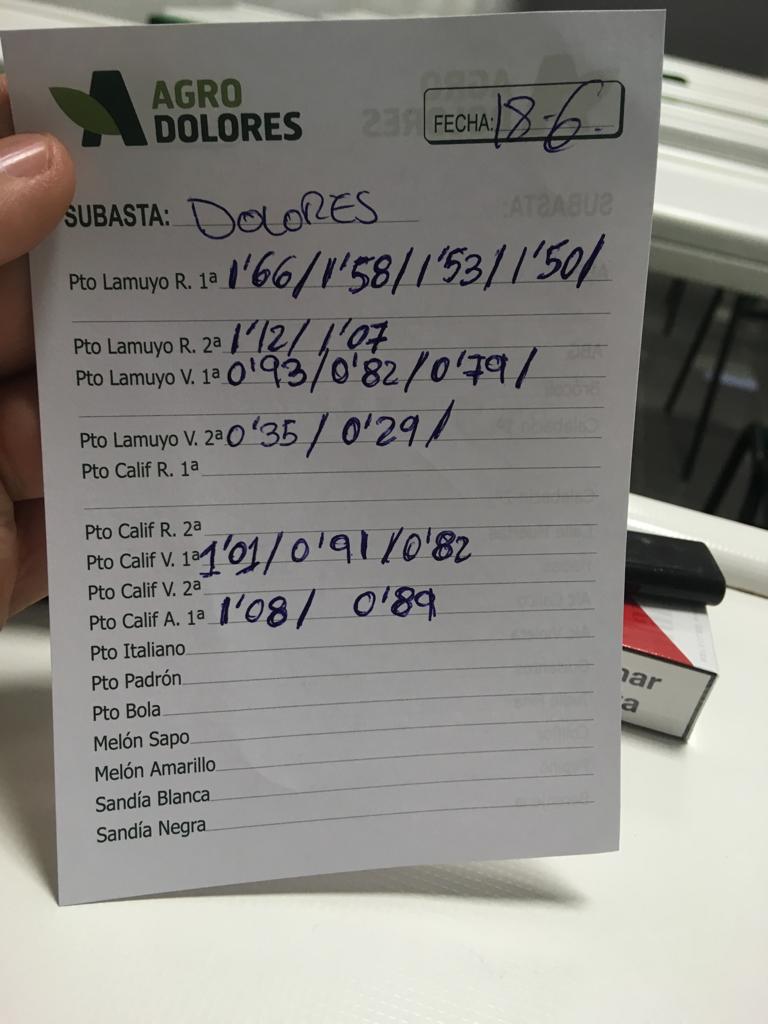 AGRO
DOLORES
FECHA: 18-6.
SUBASTA: DOLORES
Pto Lamuyo R. 1ª 1'66/1'58/1'53/1'50/
Pto Lamuyo R. 2ª 1'12/ 1'07
Pto Lamuyo V. 1ª 0'93/0'82/0'79/
Pto Lamuyo V. 2ª 0'35/ 0'29/
Pto Calif R. 1ª
Pto Calif R. 2ª
Pto Calif V. 1ª 1'01/0'91/0'82
Pto Calif V. 2ª
Pto Calif A. 1ª 1'08/ 0'89
Pto Italiano
Pto Padrón
Pto Bola
Melón Sapo
Melón Amarillo
Sandía Blanca
Sandía Negra